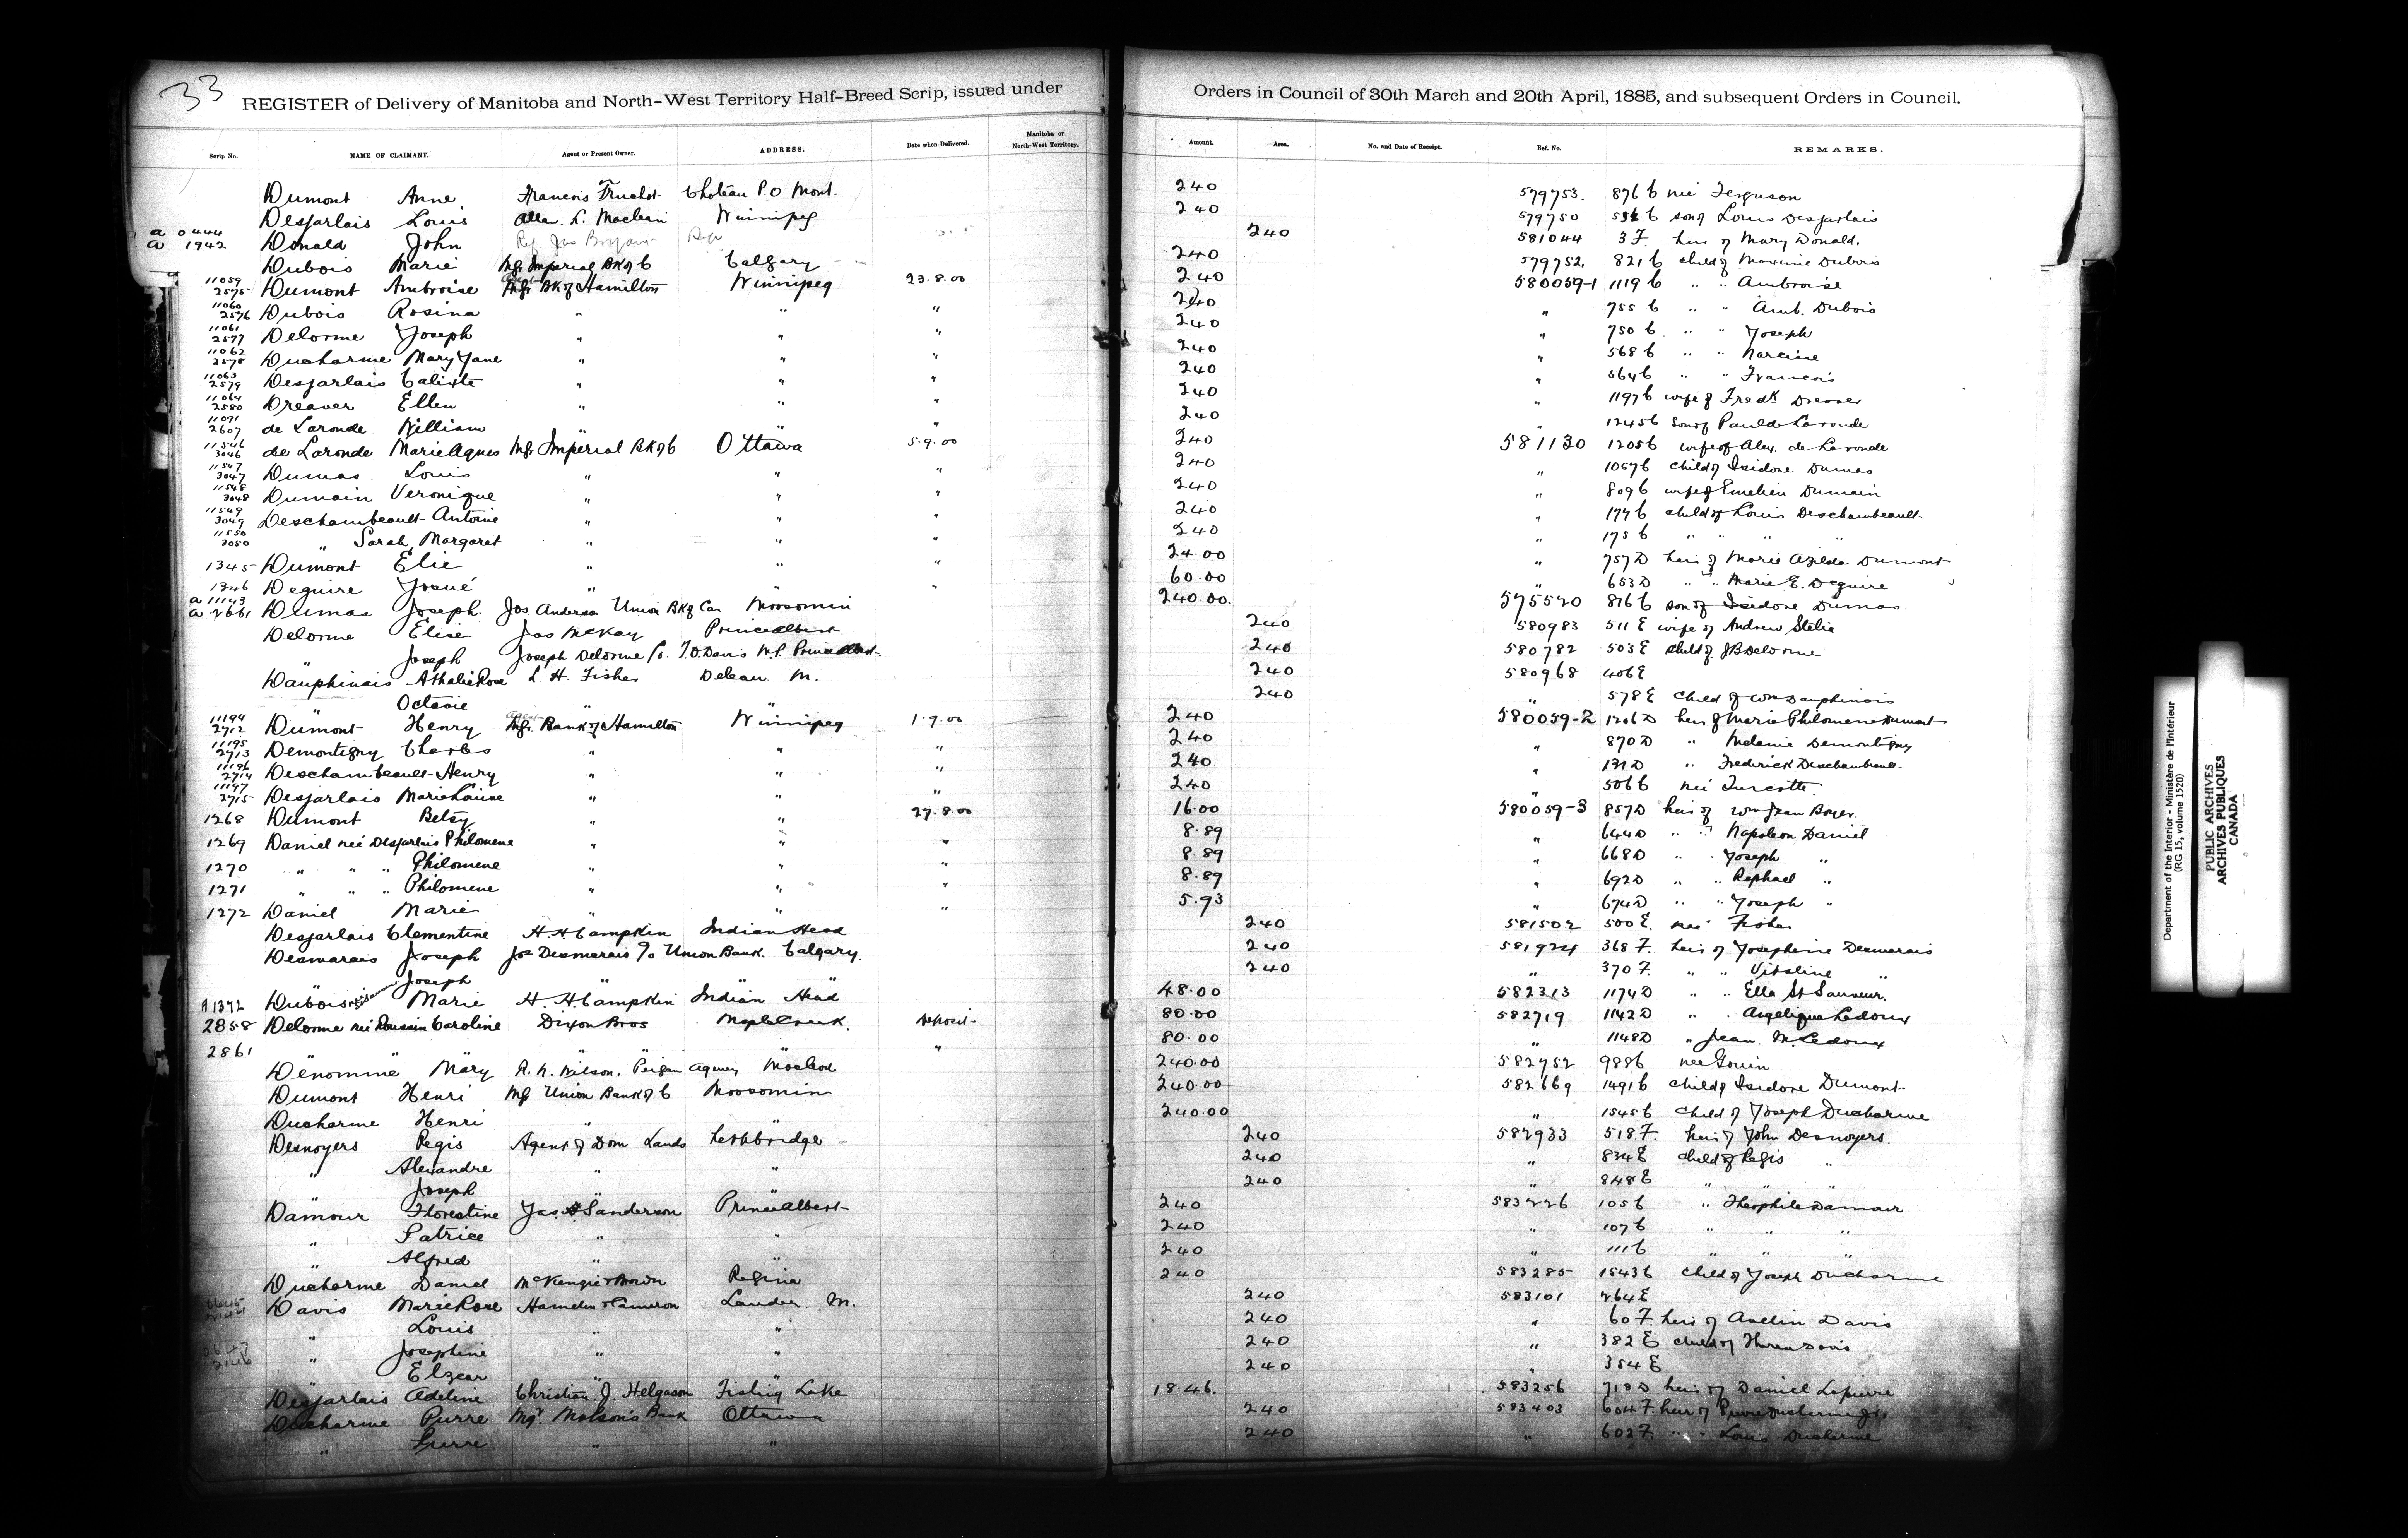 33
REGISTER of Delivery of Manitoba and North-West Territory Half-Breed Scrip, issued under Orders in Council of 30th March and 20th April, 1885, and subsequent Orders in Council.
Scrip No. NAME OF CLAIMANT. Agent or Present Owner. ADDRESS. Date when Delivered. Manitoba or North-West Territory. Amount. Area. No. and Date of Receipt. Ref. No. REMARKS.
Dumont Anne Francois Truchot Choteau P.O Mont. 240 579753. 876 C née Ferguson
Desjarlais Louis Allan. L. Maclean Winnipeg 240 579750 C son of Louis Desjarlais
a 0444 a 1942 Donald John 240 581044 3 F. heir of Mary Donald.
Dubois Marie Mgr Imperial Bk of C Calgary 240 579752. 821 C child of Maxime Dubois
11059 2575 Dumont Ambroise Bk of Hamilton Winnipeg 23.8.00 240 580059-1 1119 C " " Ambroise
11060 2576 Dubois Rosina " " " 240 " 755 C " " Amb. Dubois
11061 2577 Delorme Joseph " " " 240 " 750 C " " Joseph
11062 2578 Ducharme Mary Jane " " " 240 " 568 C " " Narcisse
11063 2579 Desjarlais Calixte " " " 240 " 564 C " " Francois
11064 2580 Dreaver Ellen " " " 240 " 1197 C wife of Fredk Dreaver
11091 2607 de Laronde William " " " 240 " 1245 C Son of Paul de Laronde
11546 3046 de Laronde Marie Agnes Mgr Imperial Bk of C Ottawa 5.9.00 240 581130 1205 C wife of Alex. de Laronde
11547 3047 Dumas Louis " " " 240 " 1057 C child of Isidore Dumas
11548 3048 Dumain Veronique " " " 240 " 809 C wife of Emelien Dumain
11549 3049 Deschambeault Antoine " " " 240 " 177 C child of Louis Deschambeault
11550 3050 " Sarah Margaret " " " 240 " 175 C " " "
1345 Dumont Elie " " " 24.00 " 757 D heir of Marie Azilda Dumont
1346 Deguire Josué " " " 60.00 " 653 D " " Marie E. Deguire
a 11143 a 2661 Dumas Joseph Jos. Anderson Union Bk of Can Moosomin 240.00. 575520 876 C son of Isidore Dumas.
Delorme Elise Jas McKay Prince Albert 240 580983 511 E wife of Andrew
" Joseph Joseph Delorme c/o T.O. Davis M.P. Prince Albert 240 580782 503 E child of JB Delorme
Dauphinais Athalie Rose L. H. Fisher Deleau M. 240 580968 406 E
" Octavie " " 240 " 578 E child of Wm Dauphinais
11194 2712 Dumont Henry Mgr. Bank of Hamilton Winnipeg 1.9.00 240 580059-2 1206 D heir of Marie Philomene Dumont
11195 2713 Demontigny Charles " " " 240 " 870 D " Melanie Demontigny
11196 2714 Deschambeault Henry " " " 240 " 171 D " Frederick Deschambeault
11197 2715 Desjarlais Marie Louise " " " 240 " 506 C née Turcotte
1268 Dumont Betsy " " 27.8.00 16.00 580059-3 857 D heir of Wm Jean Boyer.
1269 Daniel née Desjarlais Philomene " " " 8.89 " 644 D " " Napoleon Daniel
1270 " " " Philomene " " " 8.89 " 668 D " " Joseph "
1271 " " " Philomene " " " 8.89 " 692 D " " Raphael "
1272 Daniel Marie " " " 5.93 " 674 D " " Joseph "
Desjarlais Clementine H. H. Campkin Indian Head 240 581502 500 E. née Fisher
Desmarais Joseph Jos Desmarais c/o Union Bank. Calgary. 240 581924 368 F. heir of Josephine Desmarais
" Joseph " " 240 " 370 F. " " Vitaline "
A 1372 Dubois Marie H. H. Campkin Indian Head 48.00 582313 1174 D " " Ella St Sauveur.
2858 Delorme née Poussin Caroline Dixon Bros Maple Creek. Deposit 80.00 582719 1142 D " " Angelique Ledoux
2861 " " " " " 80.00 " 1148 D " Jean. M. Ledoux
Denomme Mary R. N. Wilson, Peigan Agency Macleod 240.00 582752 988 C née Gouin
Dumont Henri Mgr Union Bank of C Moosomin 240.00 582669 1491 C child of Isidore Dumont
Ducharme Henri " " 240.00 " 1545 C child of Joseph Ducharme
Desnoyers Regis Agent of Dom Lands Lethbridge 240 582933 518 F. heir of John Desnoyers.
" Alexandre " " 240 " 834 E child of Regis "
" Joseph " " 240 " 848 E " " "
Damour Florestine Jas. Sanderson Prince Albert 240 583226 105 C " Theophile Damour
" Patrice " " 240 " 107 C " " "
" Alfred " " 240 " 111 C " " "
Ducharme Daniel McKenzie & Brown Regina 240 583285 1543 C child of Joseph Ducharme
Davis Marie Rose Hamelin & Cameron Lauder M. 240 583101 264 E
" Louis " " 240 " 60 F. heir of Avelin Davis
" Josephine " " 240 " 382 E child of Davis
" Elzear " " 240 " 354 E
Desjarlais Adeline Christian J. Helgason Fishing Lake 18.46. 583256 718 D heir of Daniel Lapierre
Ducharme Pierre Mgr. Molson's Bank Ottawa 240 583403 604 F. heir of Pierre Ducharme Jr.
" Pierre " " 240 " 602 F. " " Louis Ducharme
Department of the Interior - Ministère de l'Intérieur
(RG 15, volume 1520)
PUBLIC ARCHIVES
ARCHIVES PUBLIQUES
CANADA